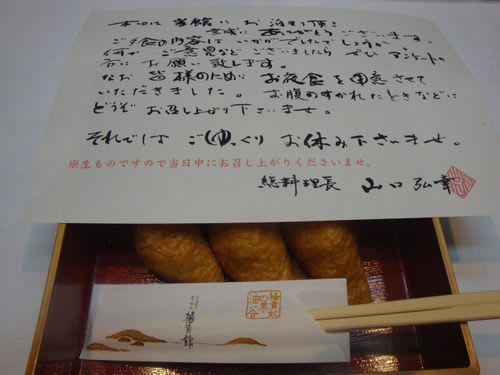 本日は 当館に お泊まり頂き
誠に ありがとうございます。
ご夕食の内容は いかがでしたでしょうか
何か ご意見など ございましたら ぜひ アンケートの
方に お願い致します。
なお 皆様のために お夜食を用意させて
いただきました。 お腹のすかれたときなどに
どうぞ お召し上がり下さいませ。
それでは ごゆっくり お休み下さいませ。
※生ものですので当日中にお召し上がりくださいませ。
総料理長 山口弘幸
楊貴館
楊貴妃の里・油谷